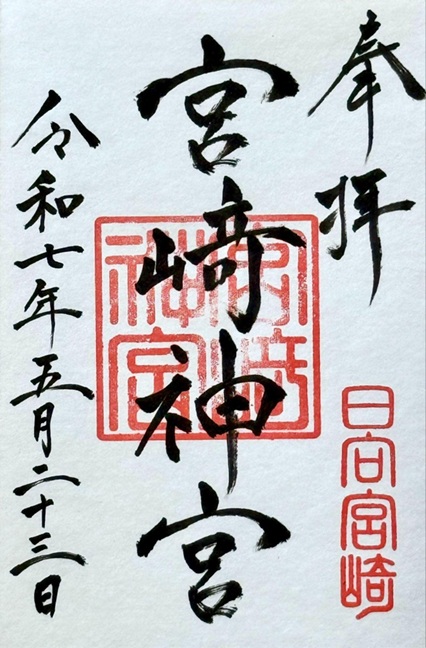 奉拝
日向宮崎
宮﨑神宮
宮崎神宮
令和七年五月二十三日